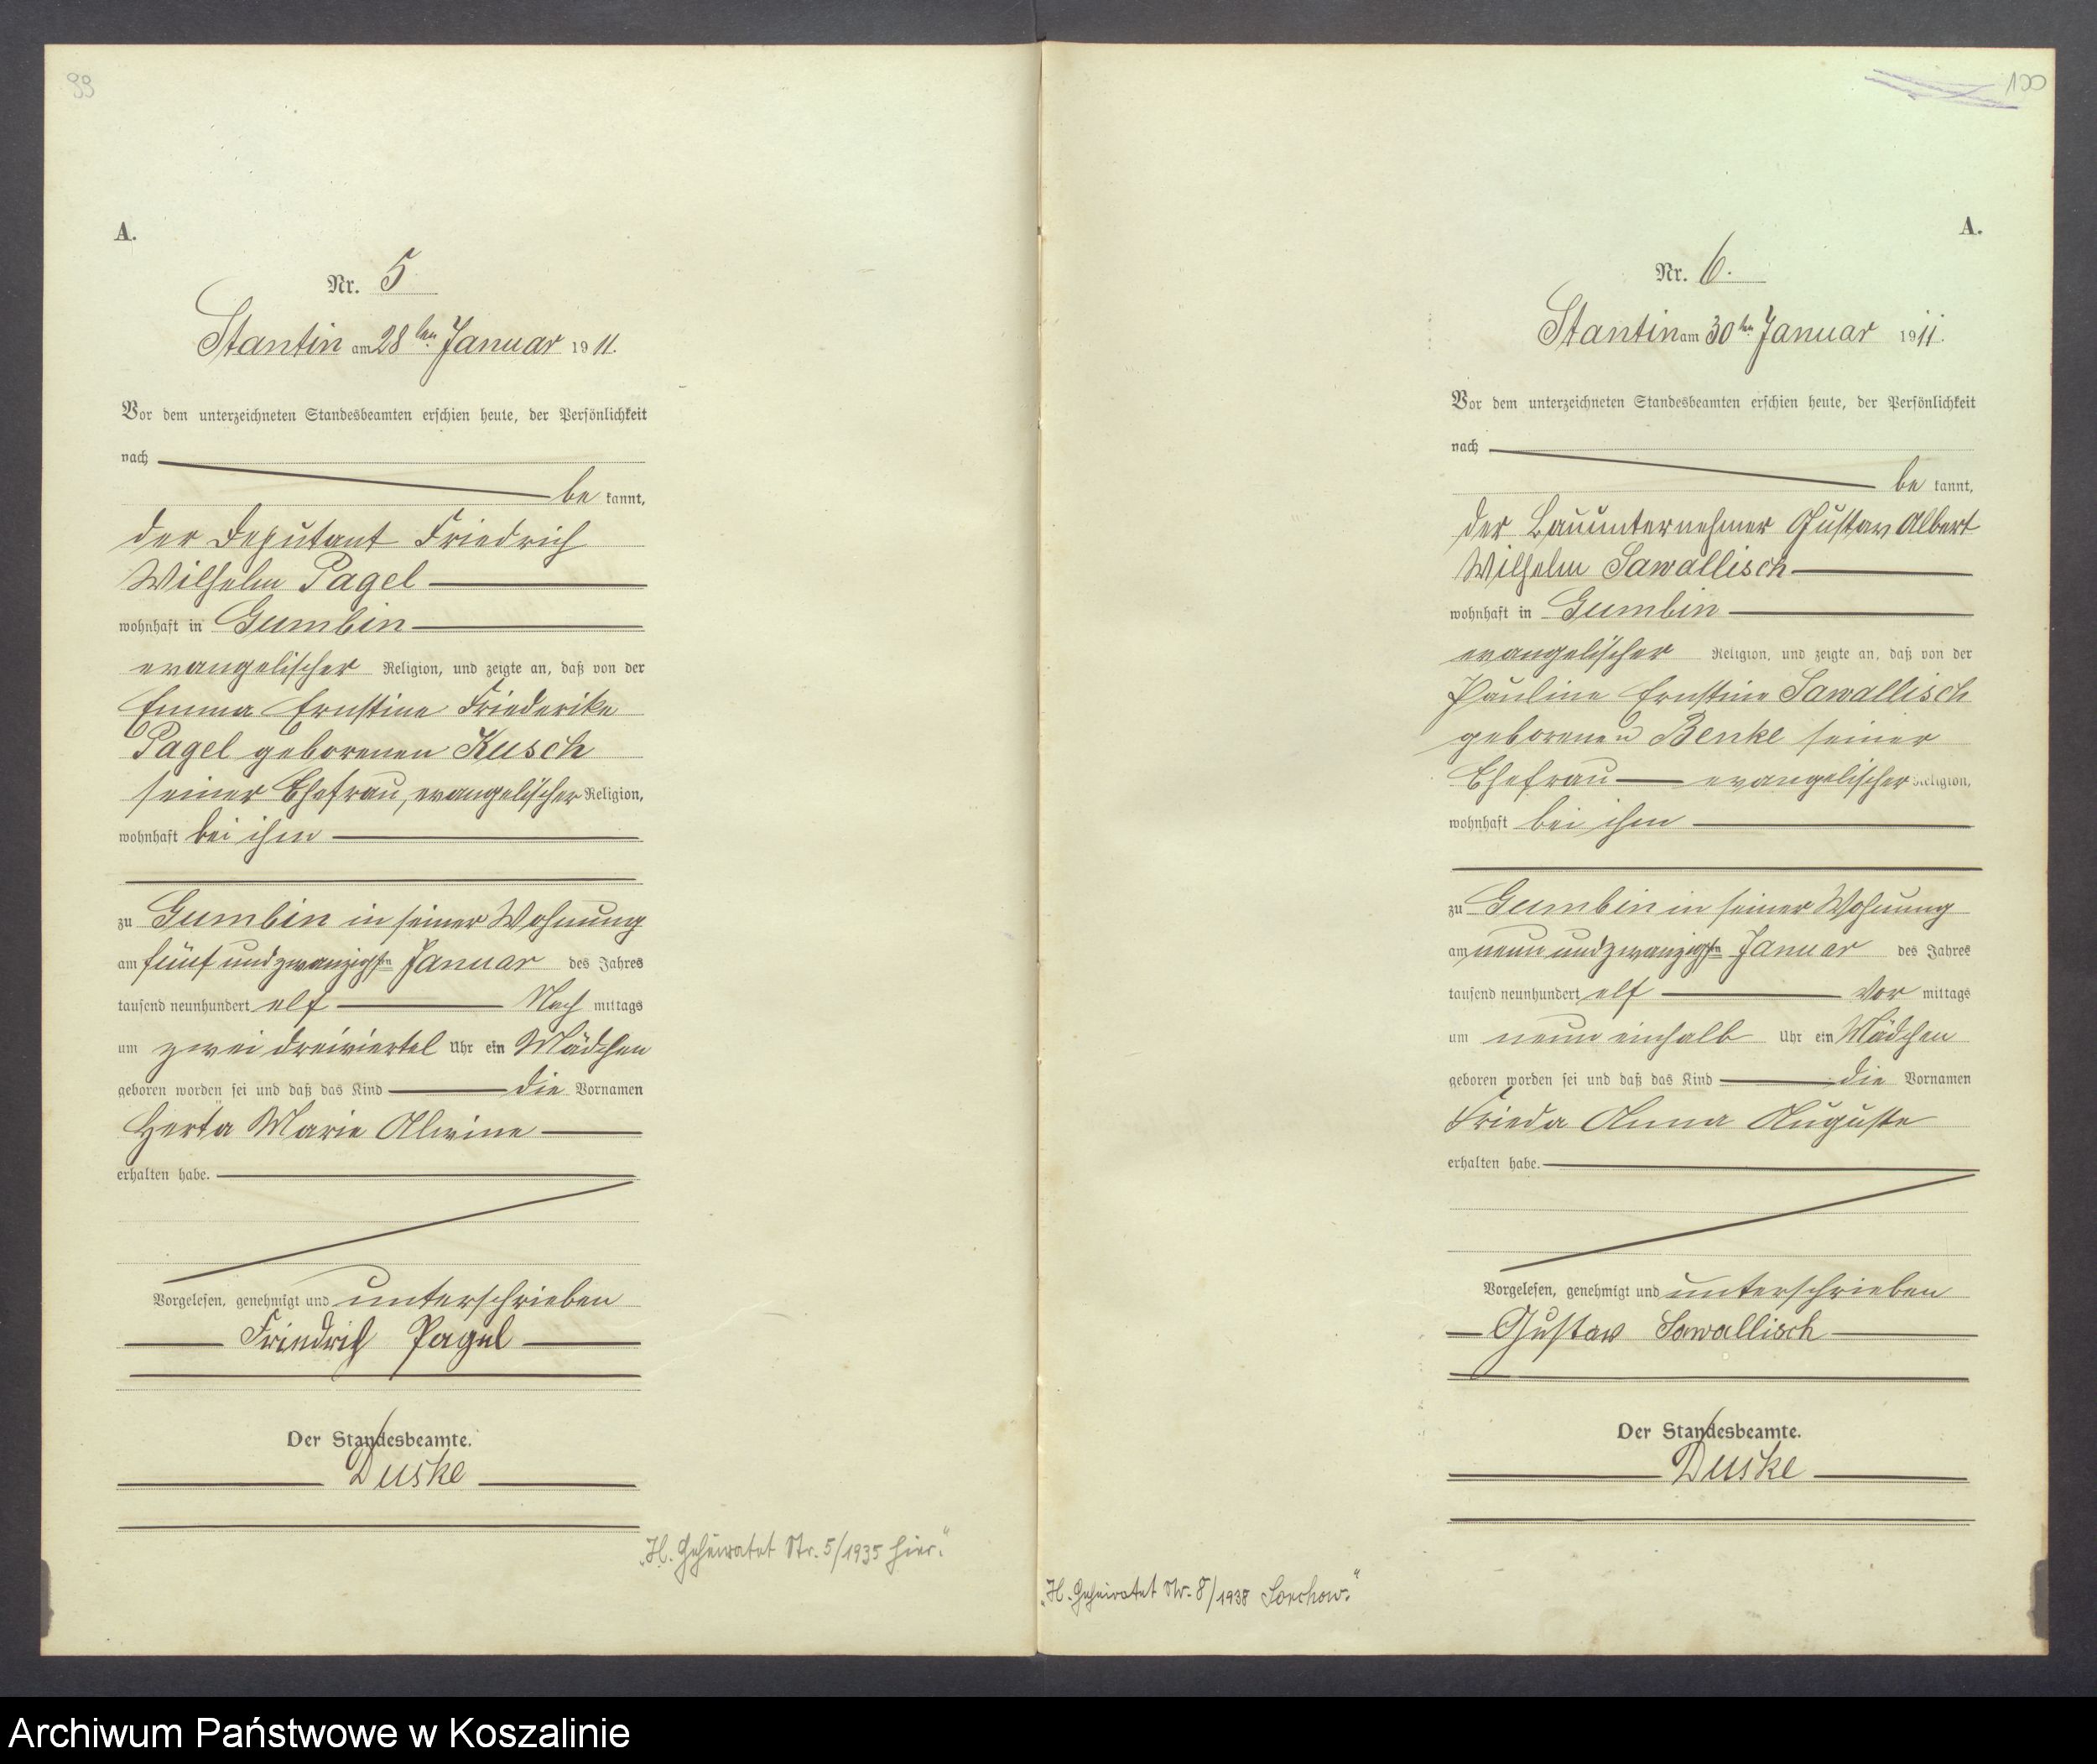 99
A.
Nr. 5
Stantin am 28ten Januar 1911.
Vor dem unterzeichneten Standesbeamten erschien heute, der Persönlichkeit
nach
be kannt,
der Deputant Friedrich
Wilhelm Pagel
wohnhaft in Gumbin
evangelischer Religion, und zeigte an, daß von der
Emma Ernstine Friederike
Pagel geborenen Kusch
seiner Ehefrau, evangelischer Religion,
wohnhaft bei ihm
zu Gumbin in seiner Wohnung
am fünf und zwanzigsten Januar des Jahres
tausend neunhundert elf Nach mittags
um zwei dreiviertel Uhr ein Mädchen
geboren worden sei und daß das Kind die Vornamen
Herta Marie Alwine
erhalten habe.
Vorgelesen, genehmigt und unterschrieben
Friedrich Pagel
Der Standesbeamte.
Duske
"H. Geheiratet Nr. 5/1935 hier."
100
A.
Nr. 6.
Stantin am 30ten Januar 1911.
Vor dem unterzeichneten Standesbeamten erschien heute, der Persönlichkeit
nach
be kannt,
der Bauunternehmer Gustav Albert
Wilhelm Sawallisch
wohnhaft in Gumbin
evangelischer Religion, und zeigte an, daß von der
Pauline Ernstine Sawallisch
geborenen Benke seiner
Ehefrau evangelischer Religion,
wohnhaft bei ihm
zu Gumbin in seiner Wohnung
am neun und zwanzigsten Januar des Jahres
tausend neunhundert elf Vor mittags
um neun einhalb Uhr ein Mädchen
geboren worden sei und daß das Kind die Vornamen
Frieda Anna Auguste
erhalten habe.
Vorgelesen, genehmigt und unterschrieben
Gustav Sawallisch
Der Standesbeamte.
Duske
"H. Geheiratet Nr. 8/1938 Sorchow."
Archiwum Państwowe w Koszalinie